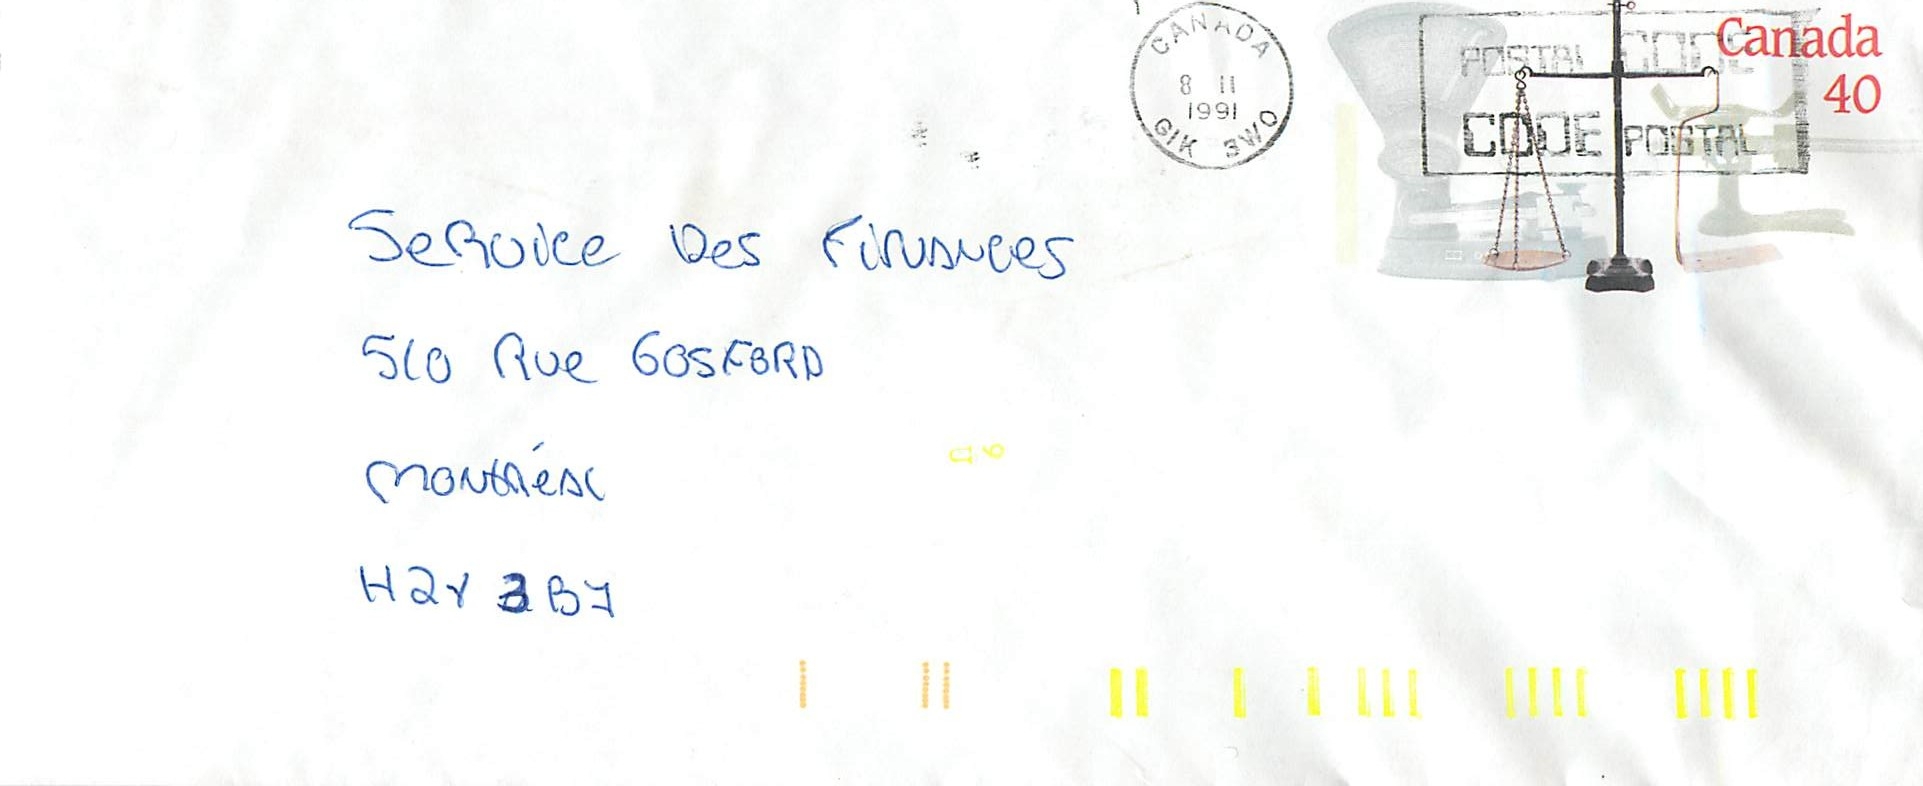 CANADA
8 11
1991
G1K 3W0
POSTAL CODE
CODE POSTAL
Canada
40
Service des Finances
510 Rue GOSFORD
Montréal
H2Y 3B7